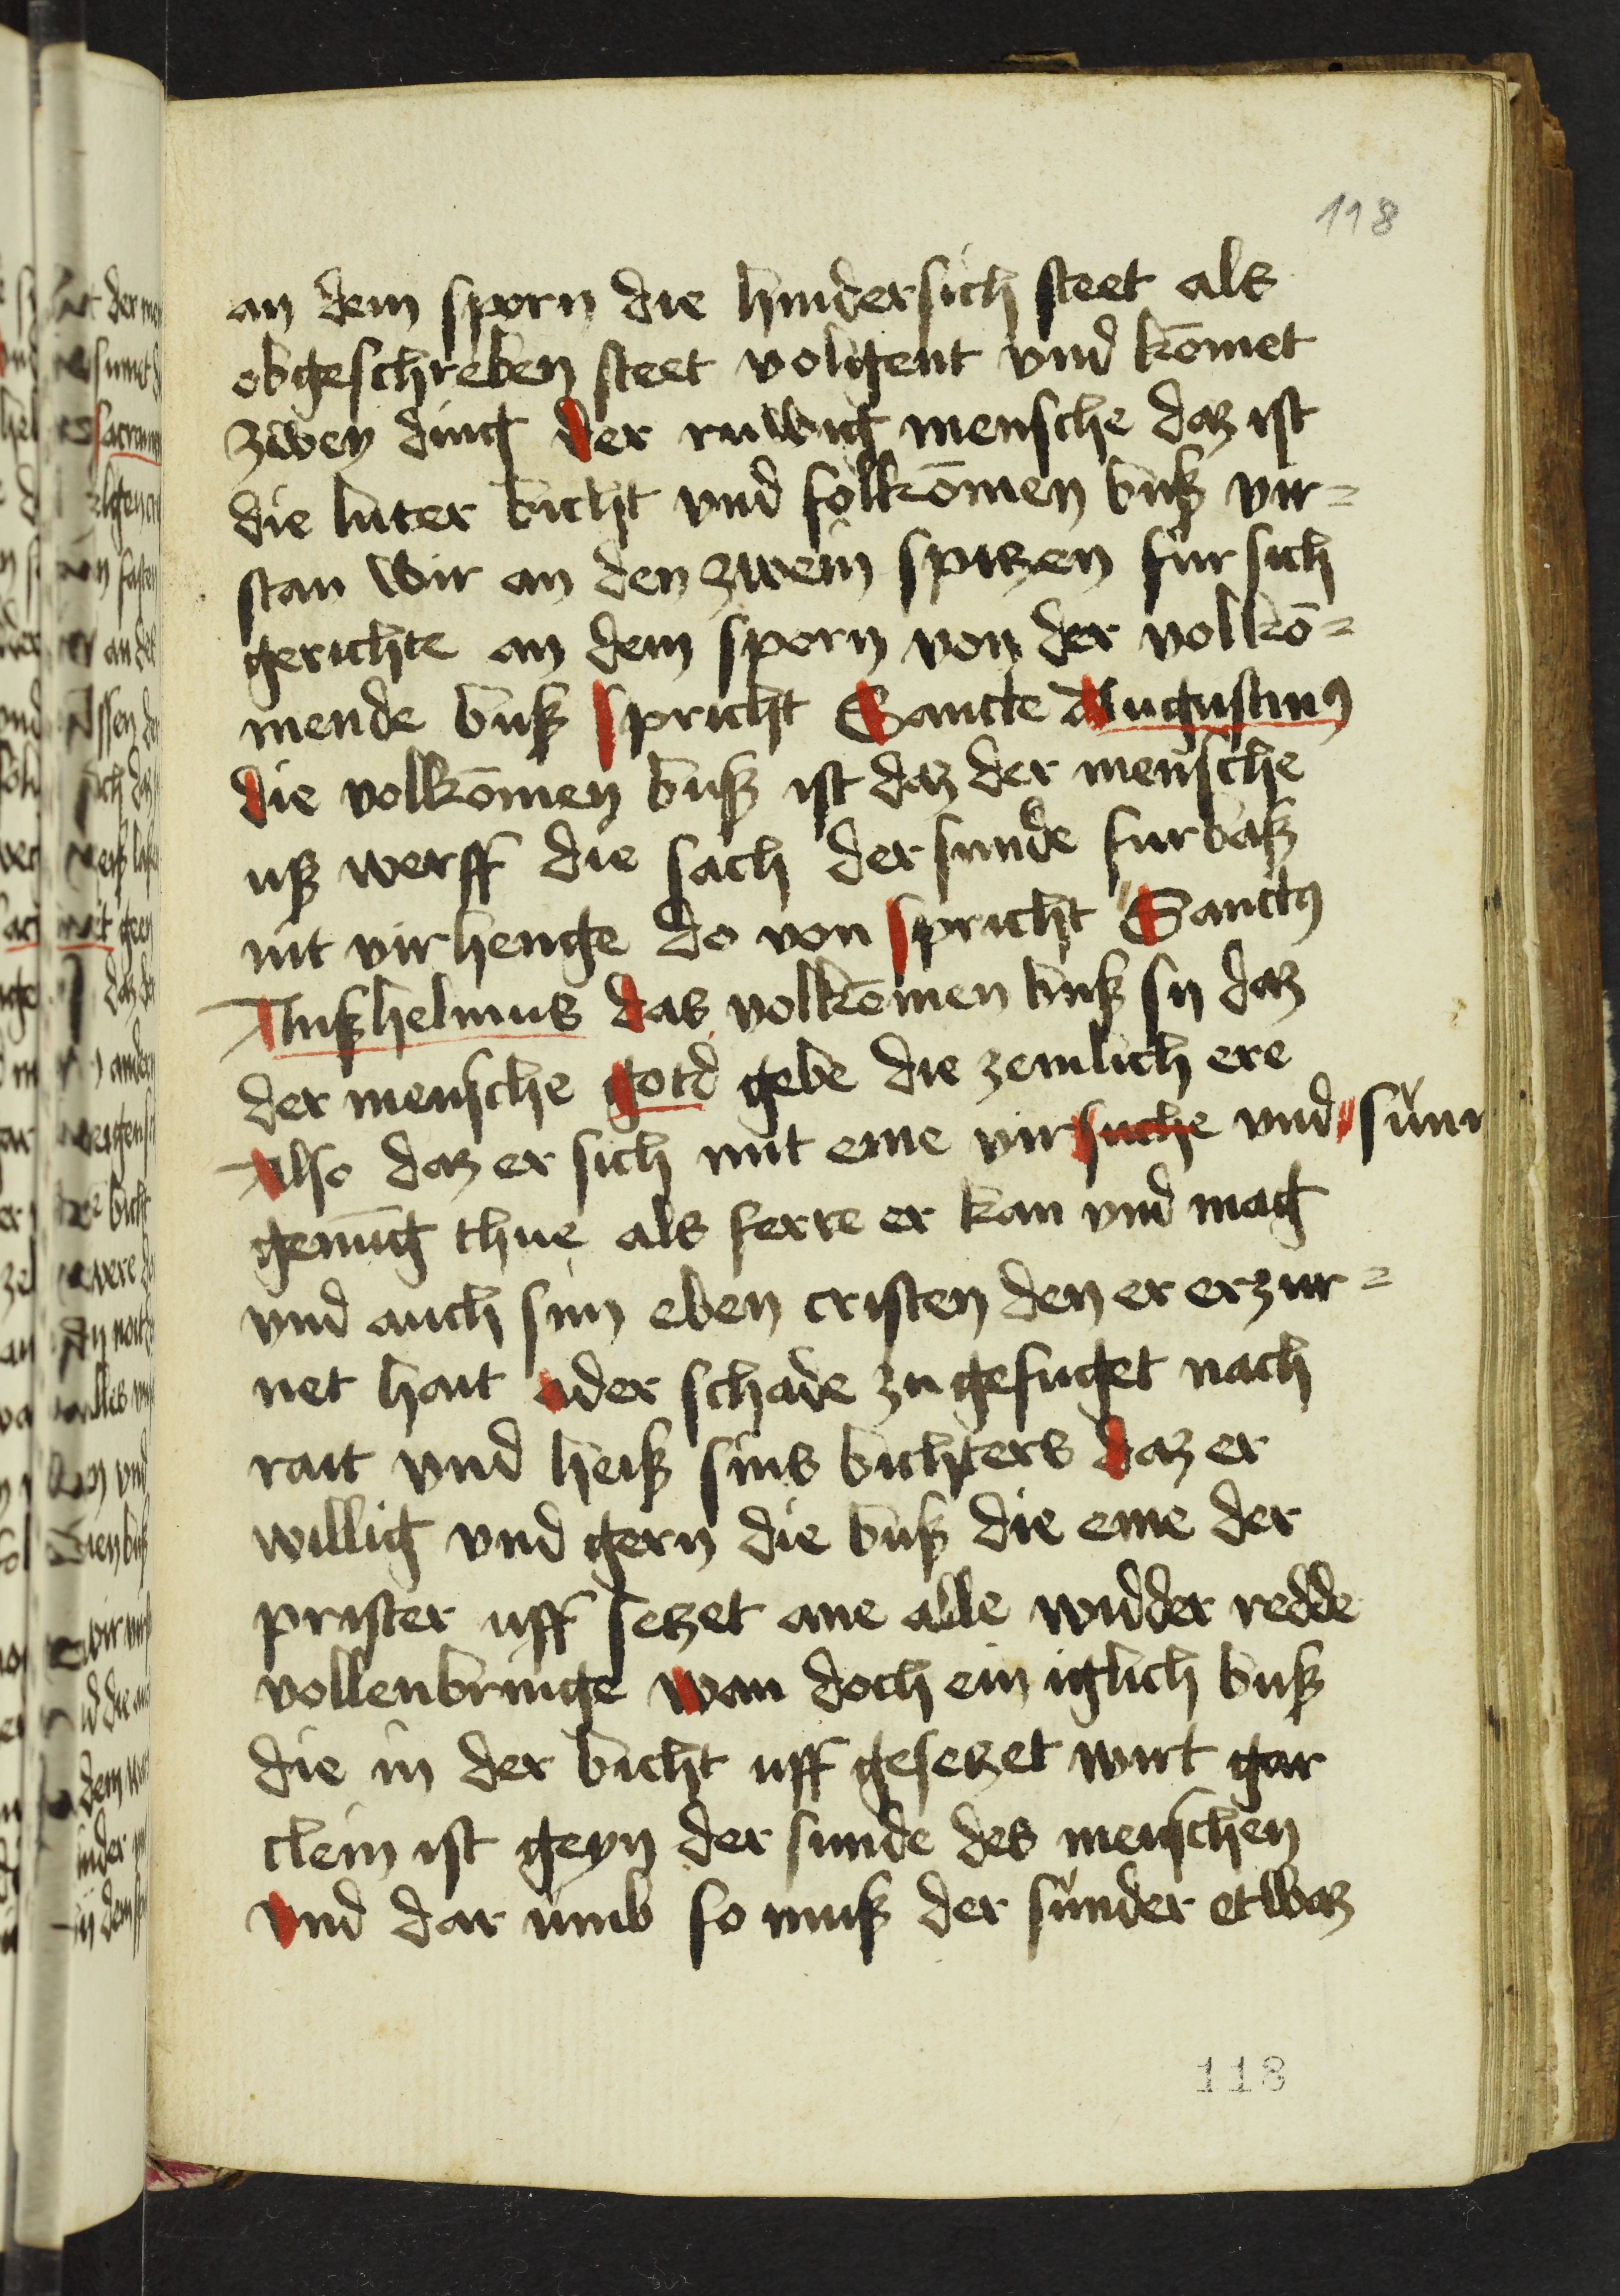 118
an dem sporn die hindersich steet als
obgeschreben steet volgent vnd kōmet
zwey ding der ruwig mensche daz ist
die luter bicht vnd folkōmen buß vir=
stan wir an den zwein spitzen fur sich
gerichte an dem sporn von der volkō=
mende buß spricht Sancte Augustinꝰ
die volkōmen buß ist daz der mensche
uß werff die sach der sunde furbaß
nit virhenge do von spricht Sanctꝰ
Anßhelmus das volkōmen buß sy daz
der mensche gotd gebe die zemlich ere
Also daz er sich mit eme virsuche vnd sūn
genūg thue als ferre er kan vnd mag
vnd auch sin eben cristen den er erzur=
net hait oder schade zu gefuget nach
rait vnd heiß sins bichters daz er
willig vnd gern die buß die eme der
prister uff setzet ane alle widder redde
vollenbringe wan doch ein iglich buß
die in der bicht uff gesetzet wirt gar
clein ist geyn der sunde des menschen
vnd dar umb so muß der sunder etwaz
118